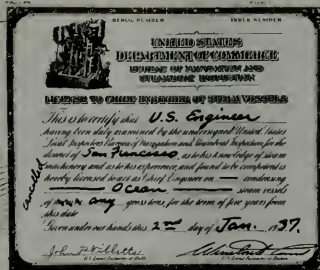 SERIAL NUMBER ISSUE NUMBER
UNITED STATES
DEPARTMENT OF COMMERCE
BUREAU OF NAVIGATION AND
STEAMBOAT INSPECTION
LICENSE TO CHIEF ENGINEER OF STEAM VESSELS
This is to certify that U.S. Engineer
having been duly examined by the undersigned United States
Local Inspectors, Bureau of Navigation and Steamboat Inspection, for the
district of San Francisco, as to his knowledge of steam
machinery and as to his experience, and found to be competent is
hereby licensed to act as Chief Engineer on condensing
Ocean steam vessels
of any gross tons, for the term of five years from
this date
Given under our hands this 2nd day of Jan. 1937.
cancelled
John P.
U.S. Local Inspector of Boilers
U.S. Local Inspector of Hulls